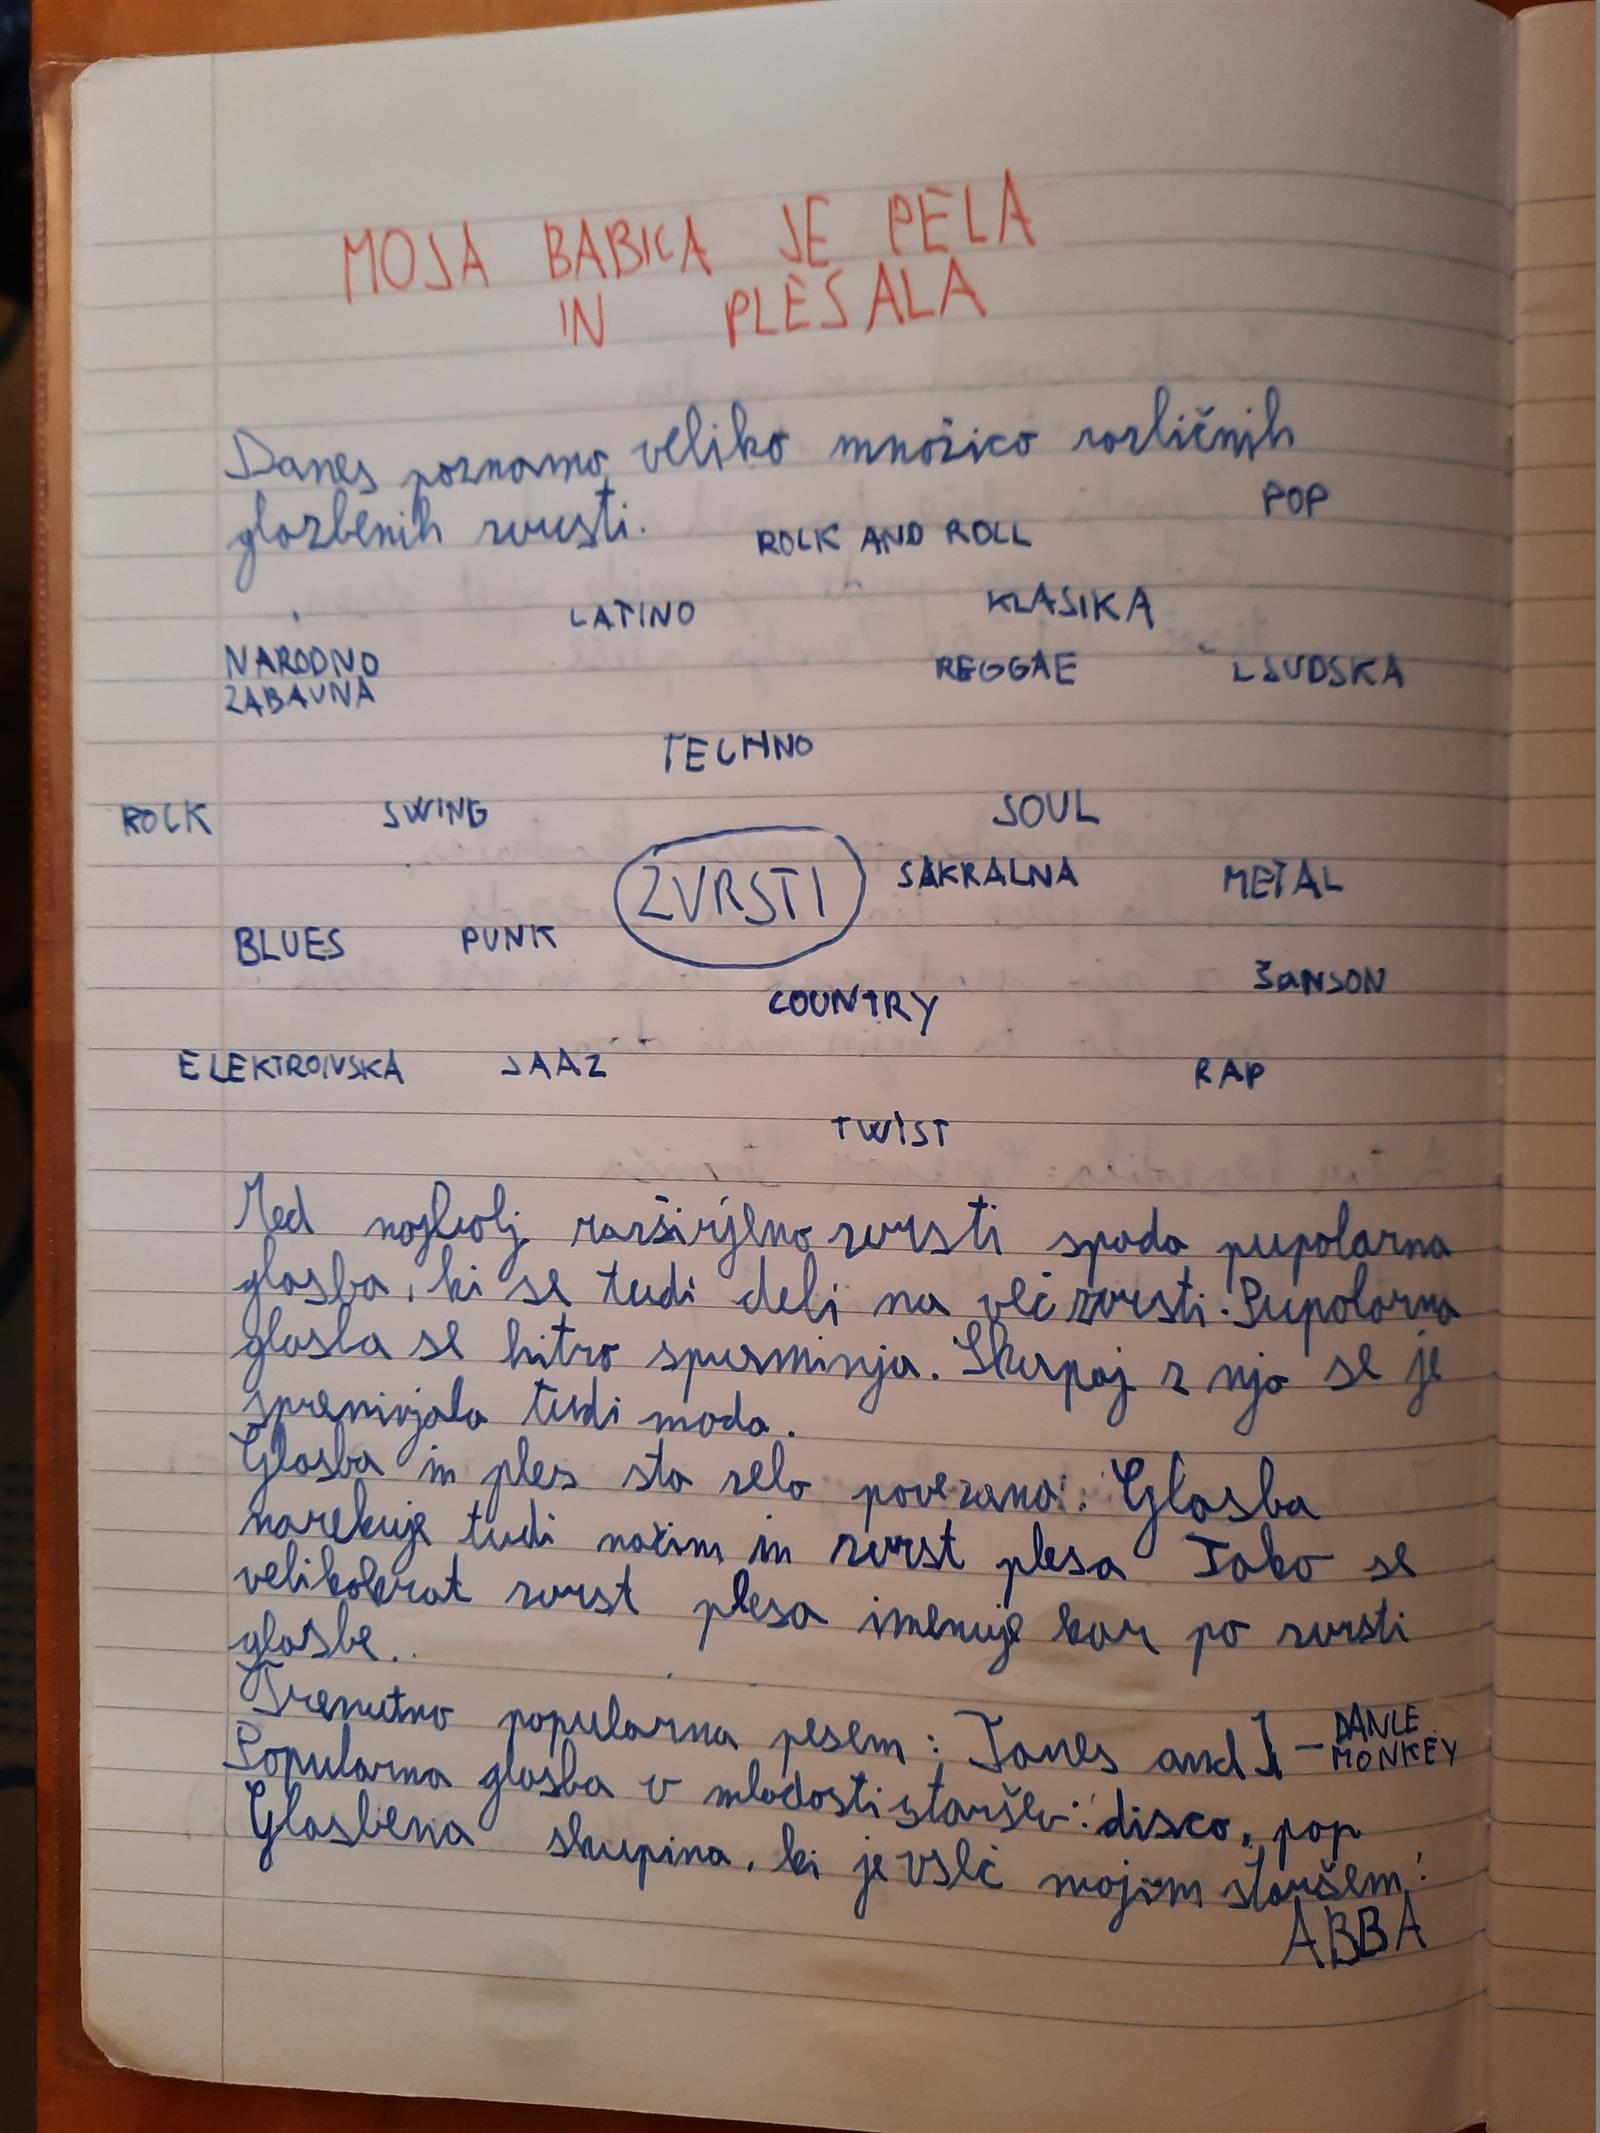 MOJA BABICA JE PELA
IN PLESALA
Danes poznamo veliko množico različnih
glazbenih zvrsti.
POP
ROCK AND ROLL
LATINO
KLASIKA
NARODNO
ZABAVNA
REGGAE
LJUDSKA
TECHNO
ROCK
SWING
SOUL
ZVRSTI
SAKRALNA
METAL
BLUES
PUNK
ŠANSON
COUNTRY
ELEKTRONSKA
JAAZ
RAP
TWIST
Med najbolj razširjeno zvrsti spada pupolarna
glasba, ki se tudi deli na več zvrsti. Pupolarna
glasba se hitro spurminja. Skupaj z njo se je
spreminjala tudi moda.
Glasba in ples sta zelo povezana. Glasba
narekuje tudi način in zvrst plesa Tako se
velikokrat zvrst plesa imenuje kar po zvrsti
glasbe.
Trenutno popularna pesem: Tones and I - DANCE
MONKEY
Popularna glasba v mladosti staršev: disco, pop
Glasbena skupina, ki je všeč mojim staršem:
ABBA